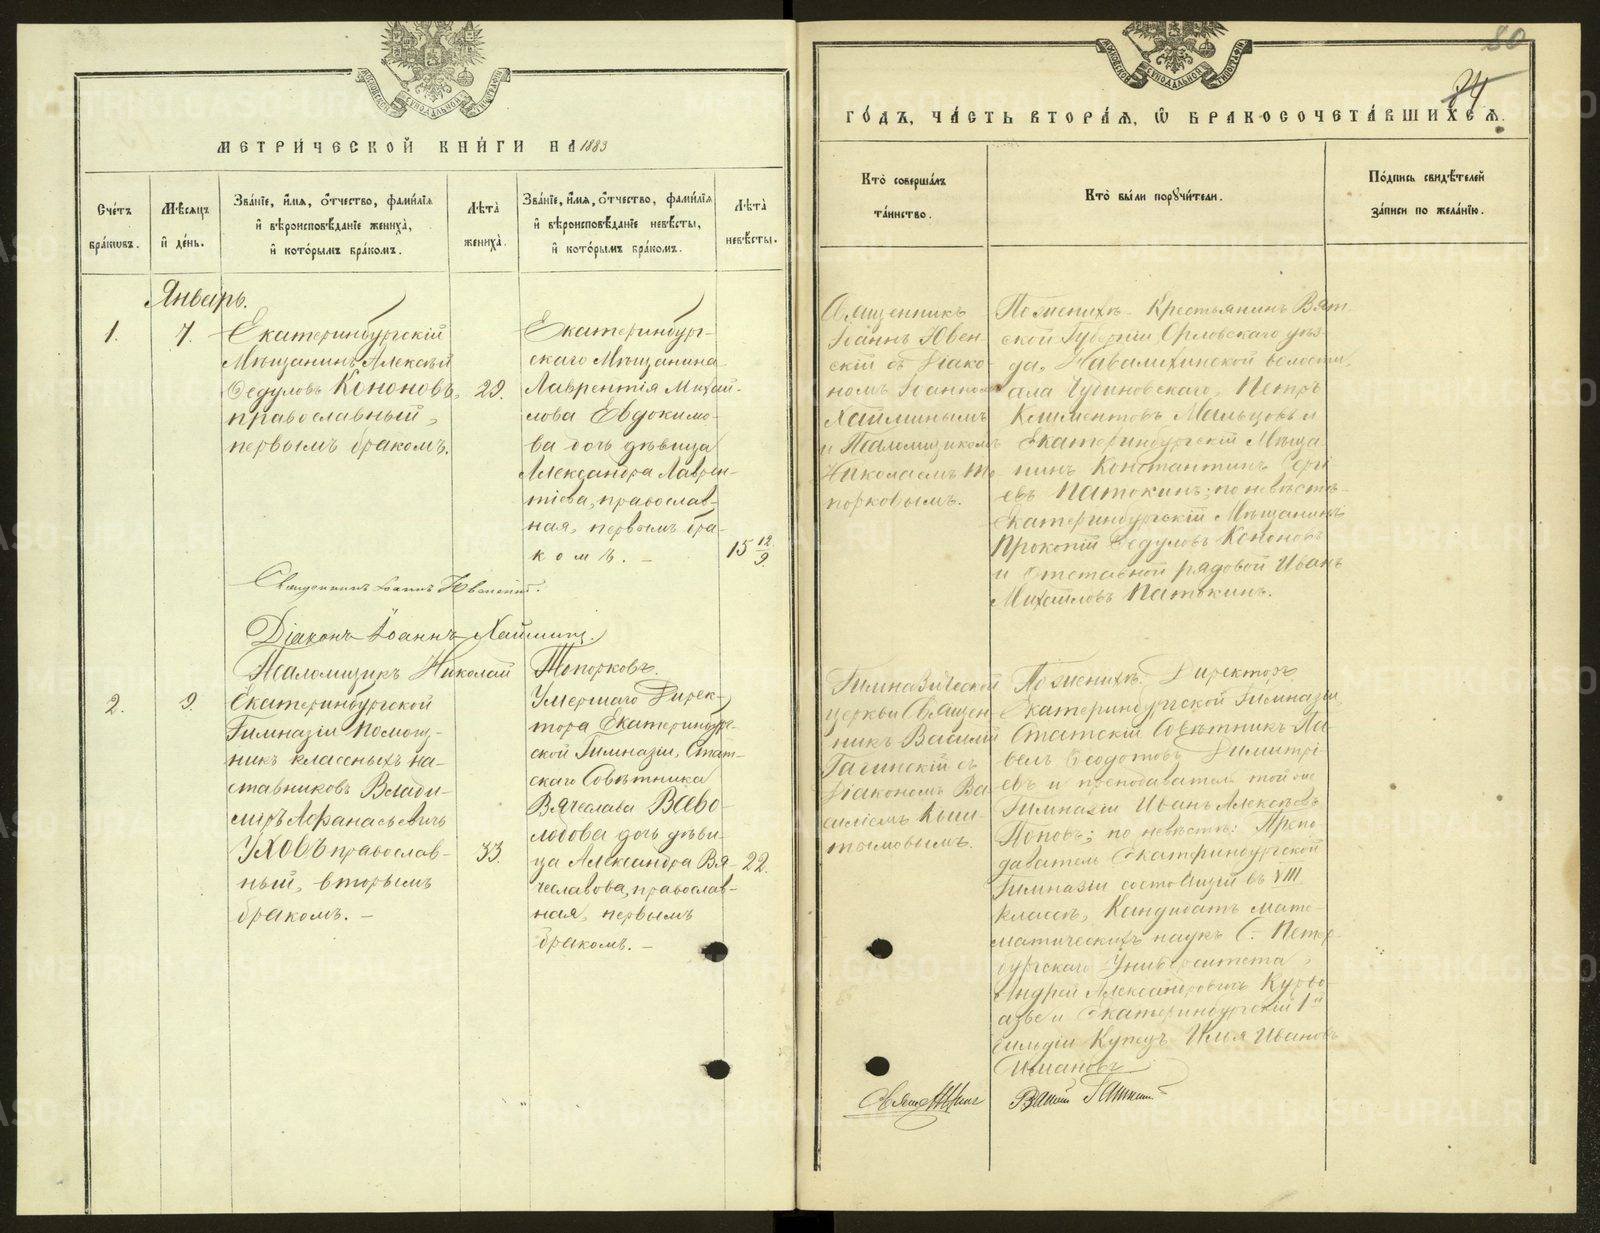 МЕТРИЧЕСКОЙ КНИГИ НА 1883
Счетъ браковъ.
Мѣсяцъ и день.
Званіе, имя, отчество, фамилія и вѣроисповѣданіе жениха, и которымъ бракомъ.
Лѣта жениха.
Званіе, имя, отчество, фамилія и вѣроисповѣданіе невѣсты, и которымъ бракомъ.
Лѣта невѣсты.
Январь.
1.
7.
Екатеринбургскій
Мѣщанинъ Алексѣй
Ѳедуловъ Кононовъ,
православный,
первымъ бракомъ.
29.
Екатеринбург-
скаго Мѣщанина
Лаврентія Михай-
лова Евдокимо-
ва дочь дѣвица
Александра Лаврен-
тіева, православ-
ная, первымъ бра-
комъ. –
15 12/9.
Священникъ Іоаннъ Ювенскій.
Діаконъ Іоаннъ Хайминъ.
Псаломщикъ Николай Топорковъ.
2.
9.
Екатеринбургской
Гимназіи помощ-
никъ классныхъ на-
ставниковъ Влади-
міръ Афанасьевичъ
Уховъ православ-
ный, вторымъ
бракомъ. –
33.
Умершаго Дирек-
тора Екатеринбург-
ской Гимназіи, Стат-
скаго Совѣтника
Вячеслава Во-
лобова дочь дѣви-
ца Александра Вя-
чеславова, православ-
ная, первымъ
бракомъ. –
22.
80
74
ГОДЪ, ЧАСТЬ ВТОРАЯ, Ѡ БРАКОСОЧЕТАВШИХСЯ.
Кто совершалъ таинство.
Кто были поручители.
Подпись свидѣтелей записи по желанію.
Священникъ
Іоаннъ Ювен-
скій съ Діако-
номъ Іоанномъ
Хайминымъ
и Псаломщикомъ
Николаемъ То-
порковымъ.
По женихѣ - Крестьянинъ Вят-
ской Губерніи Орловскаго уѣз-
да, волости,
Петръ
Климентовъ Мальцовъ и
Екатеринбургскій Мѣща-
нинъ Константинъ Сергі-
евъ Патокинъ; по невѣстѣ -
Екатеринбургскій Мѣщанинъ
Прокопій Ѳедуловъ Кононовъ
и отставной рядовой Иванъ
Михайловъ Патокинъ.
Гимназической
церкви Священ-
никъ Василій
съ
Діакономъ Ва-
силіемъ Кыш-
тымовымъ.
По женихѣ: Директоръ
Екатеринбургской Гимназіи
Статскій Совѣтникъ Па-
велъ Ѳеодотовъ Димитрі-
евъ и преподаватель той же
Гимназіи Иванъ Алексѣевъ
Поповъ; по невѣстѣ: Препо-
даватель Екатеринбургской
Гимназіи состоящій въ VIII
классѣ, Кандидатъ мате-
матическихъ наукъ С. Петер-
бургскаго Университета,
Андрей Александровичъ
и Екатеринбургскій 1й
гильдіи Купецъ Илья Ивановъ